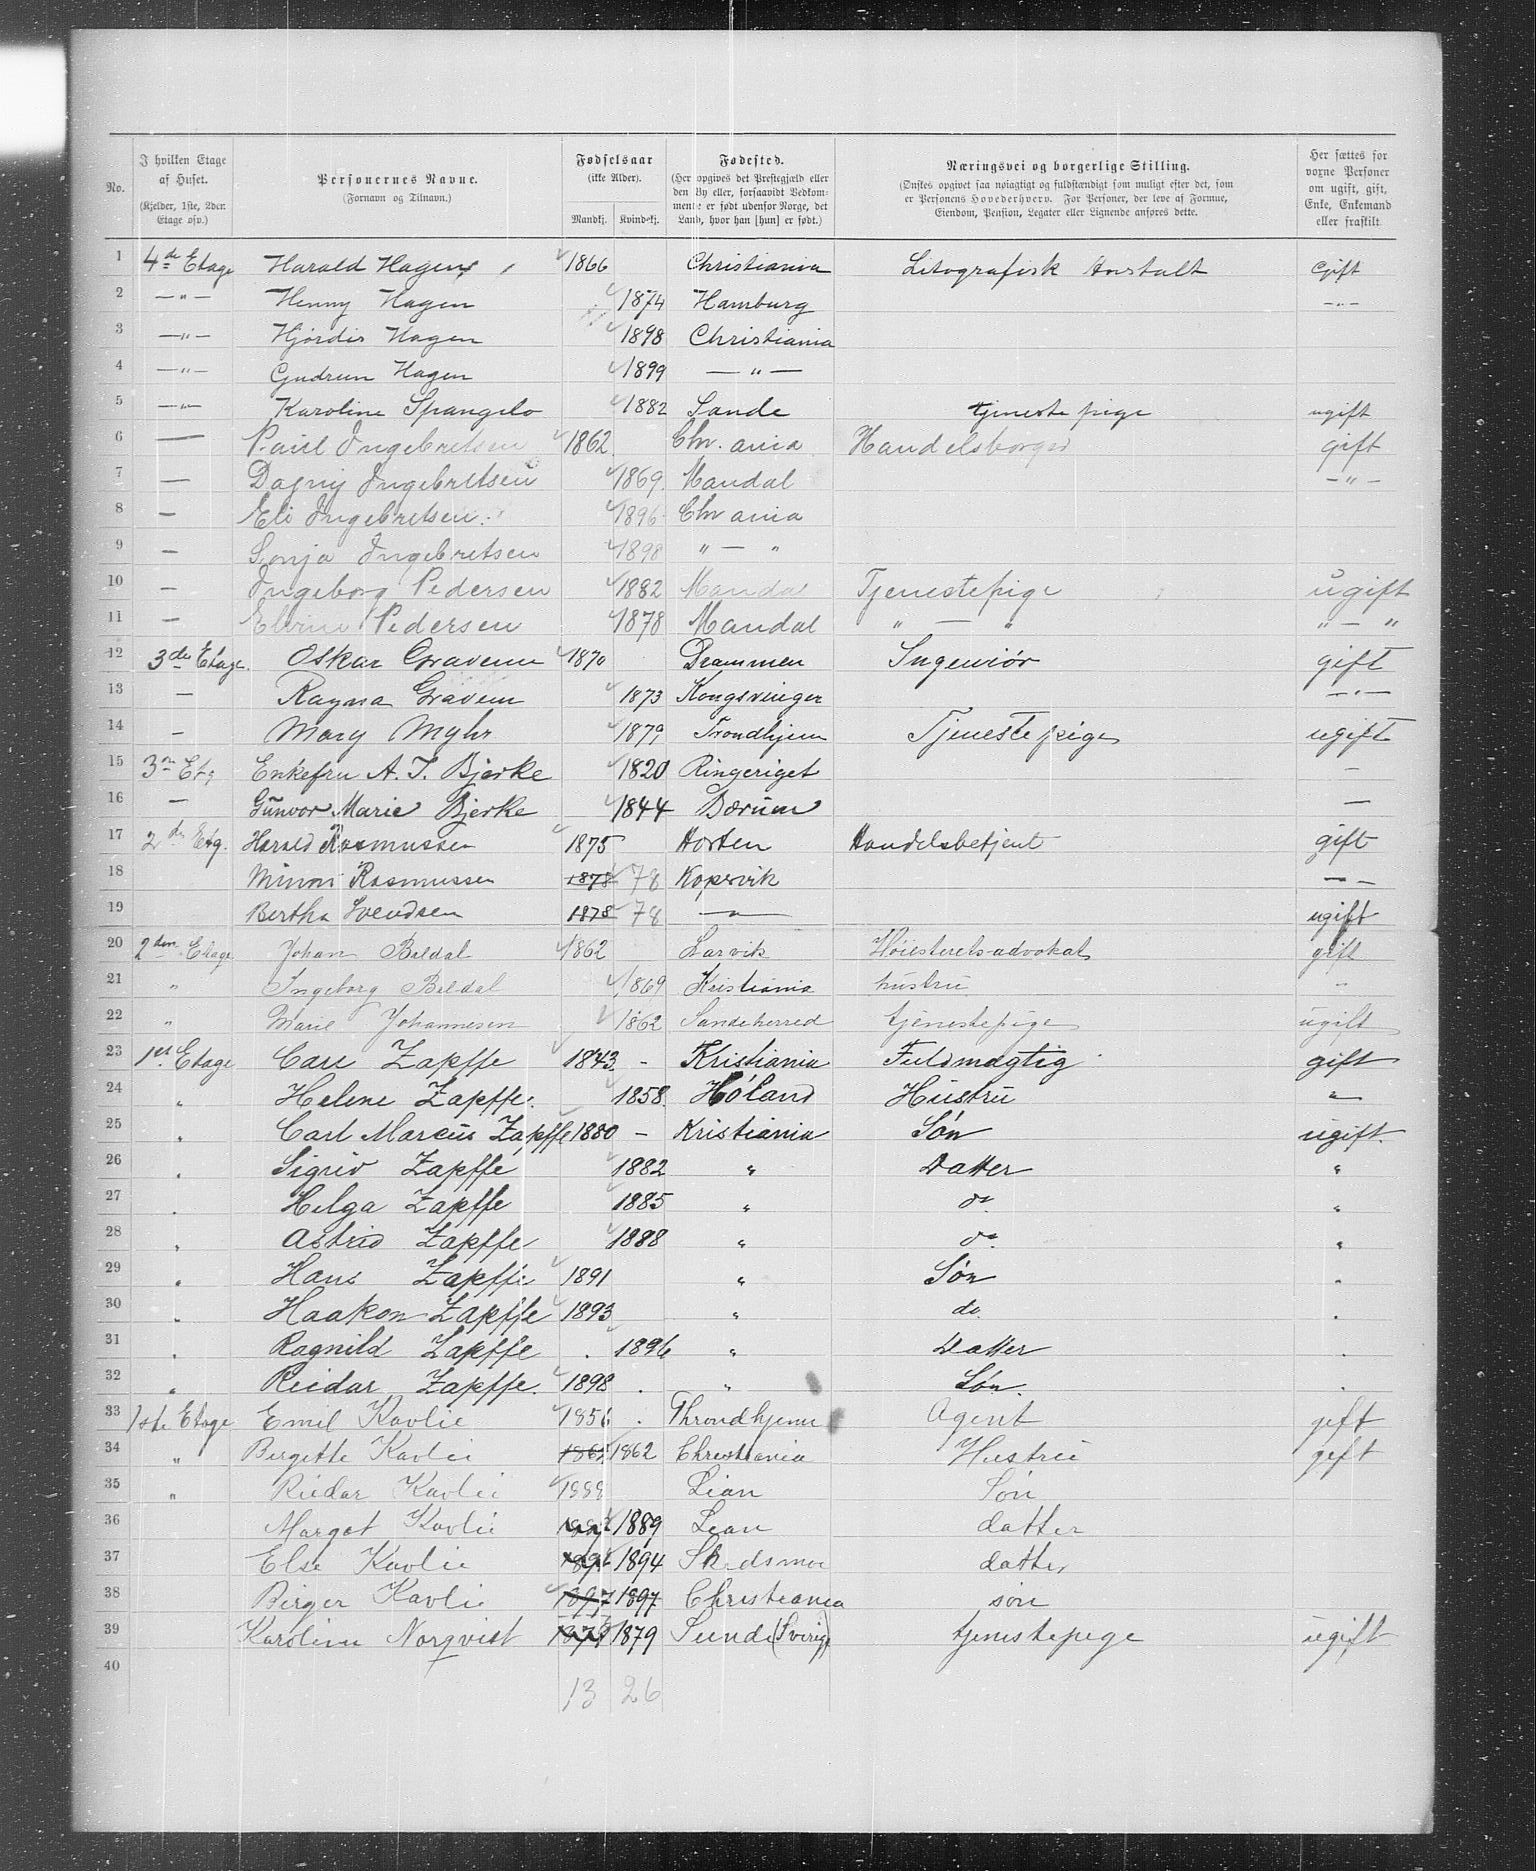 No. | I hvilken Etage af Huset. (Kjelder, 1ste, 2den Etage osv.) | Personernes Navne. (Fornavn og Tilnavn.) | Fødselsaar (ikke Alder). Mandkj. | Kvindekj. | Fødested. (Her opgives det Prestegjæld eller den By eller, forsaavidt Vedkommende er født udenfor Norge, det Land, hvor han [hun] er født.) | Næringsvei og borgerlige Stilling. (Ønskes opgivet saa nøiagtigt og fuldstændigt som muligt efter det, som er Personens Hovederhverv. For Personer, der leve af Formue, Eiendom, Pension, Legater eller Lignende anføres dette. | Her sættes for vorne Personer om ugift, gift, Enke, Enkemand eller fraskilt
1 4de Etage Harald Hagen 1866 Christiania Litografisk Anstalt Gift
2 —"— Henny Hagen 1874 Hamburg —"—
3 —"— Hjørdis Hagen 1898 Christiania
4 —"— Gudrun Hagen 1899 —"—
5 —"— Karoline Spangelo 1882 Sande tjenestepige ugift
6 — Paul Ingebretsen 1862 Chr.ania Handelsborger gift
7 — Dagny Ingebretsen 1869 Mandal —"—
8 — Eli Ingebretsen 1896 Chrania
9 — Sonja Ingebretsen 1898 "—"
10 — Ingeborg Pedersen 1882 Mandal Tjenestepige ugift
11 — Pedersen 1878 Mandal "—" "—"
12 3de Etage Oskar Gravem 1870 Drammen Ingeniør gift
13 — Ragna Gravem 1873 Kongsvinger —"—
14 — Mary Myhr 1879 Trondhjem Tjenestepige ugift
15 3n Etg Enkefru A. T. Bjerke 1820 Ringeriget —
16 — Gunvor Marie Bjerke 1844 Bærum —
17 2de Etg. Harald Rasmussen 1875 Horten Handelsbetjent gift
18 Minni Rasmussen 1878 78 Kopervik —"—
19 Bertha Svendsen 1878 78 —"— ugift
20 2den Etage Johan Beldal 1862 Larvik Høiesteretsadvokat gift
21 " Ingeborg Beldal 1869 Kristiania hustru "
22 " Marie Johannesen 1862 Sandeherred tjenestepige ugift
23 1ste Etage Carl Zapffe 1843 - Kristiania Fuldmægtig gift
24 " Helene Zapffe 1858 Høland Hustru "
25 " Carl Marcus Zapffe 1880 - Kristiania Søn ugift
26 " Sigrid Zapffe 1882 " Datter "
27 " Helga Zapffe 1885 " do "
28 " Astrid Zapffe 1888 " do "
29 " Hans Zapffe 1891 " Søn "
30 " Haakon Zapffe 1893 " do "
31 " Ragnild Zapffe 1896 " Datter "
32 " Reidar Zapffe 1898 " Søn "
33 1ste Etage Emil Kavlie 1856 Throndhjem Agent gift
34 " Birgette Kavlie 1862 1862 Christiania Hustru gift
35 " Reidar Kavlie 1888 Lian Søn
36 Margot Kavlie 1889 Lian datter
37 Else Kavlie 1894 Skedsmo datter
38 Birger Kavlie 1897 1897 Christiania søn
39 Karoline Norqvist 1879 1879 Sunde (Sverige) tjenestepige ugift
40
13 26